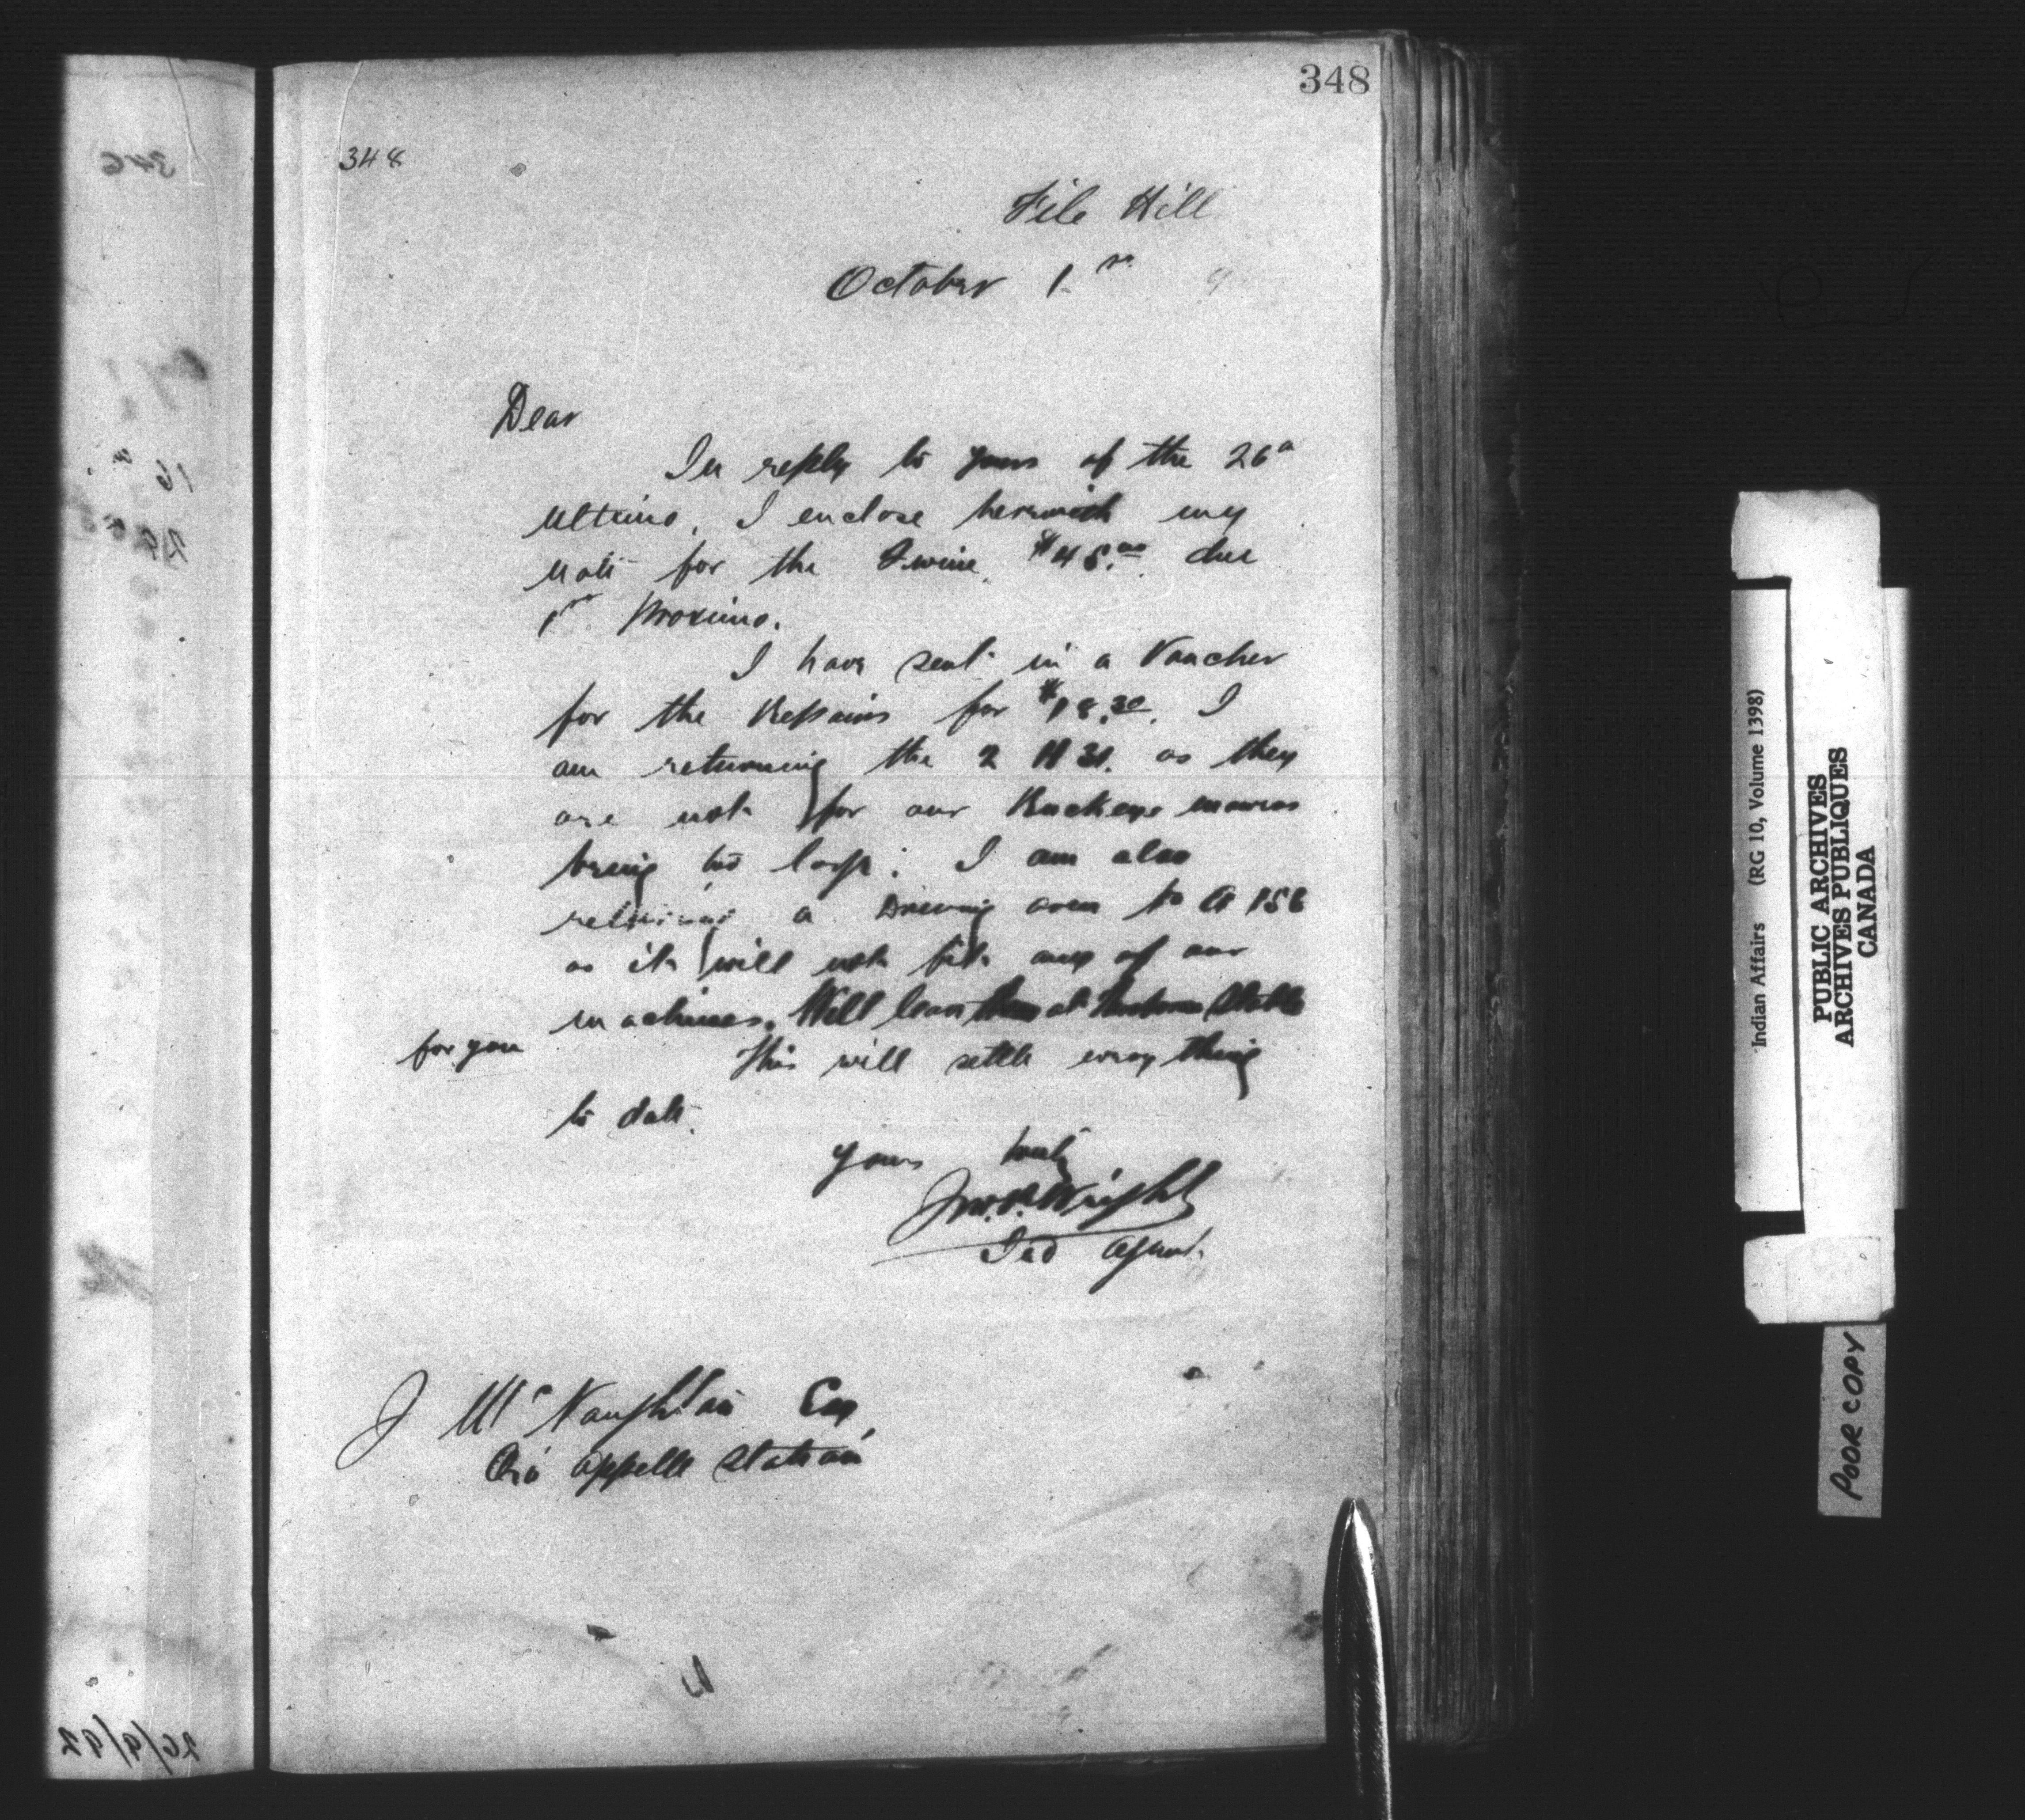 348
348
File Hill
October 1st 9
Dear
In reply to yours of the 26th
Ultimo, I enclose herewith my
Note for the Twine, $45.00 due
1st Proximo.
I have sent in a Voucher
for the Repairs for $18.30. I
am returning the 2 H 31. as they
are not for our Buckeye mowers
being too large. I am also
returning a Driving arm to A 158
as it will not fit any of our
machines. Will leave them at Stable
for you
This will settle every thing
to date.
Yours truly
J.W.P. Wright
Ind Agent.
J McNaughtan Esq,
Qu'Appelle Station
346
26/9/92
Indian Affairs (RG 10, Volume 1398)
PUBLIC ARCHIVES
ARCHIVES PUBLIQUES
CANADA
POOR COPY